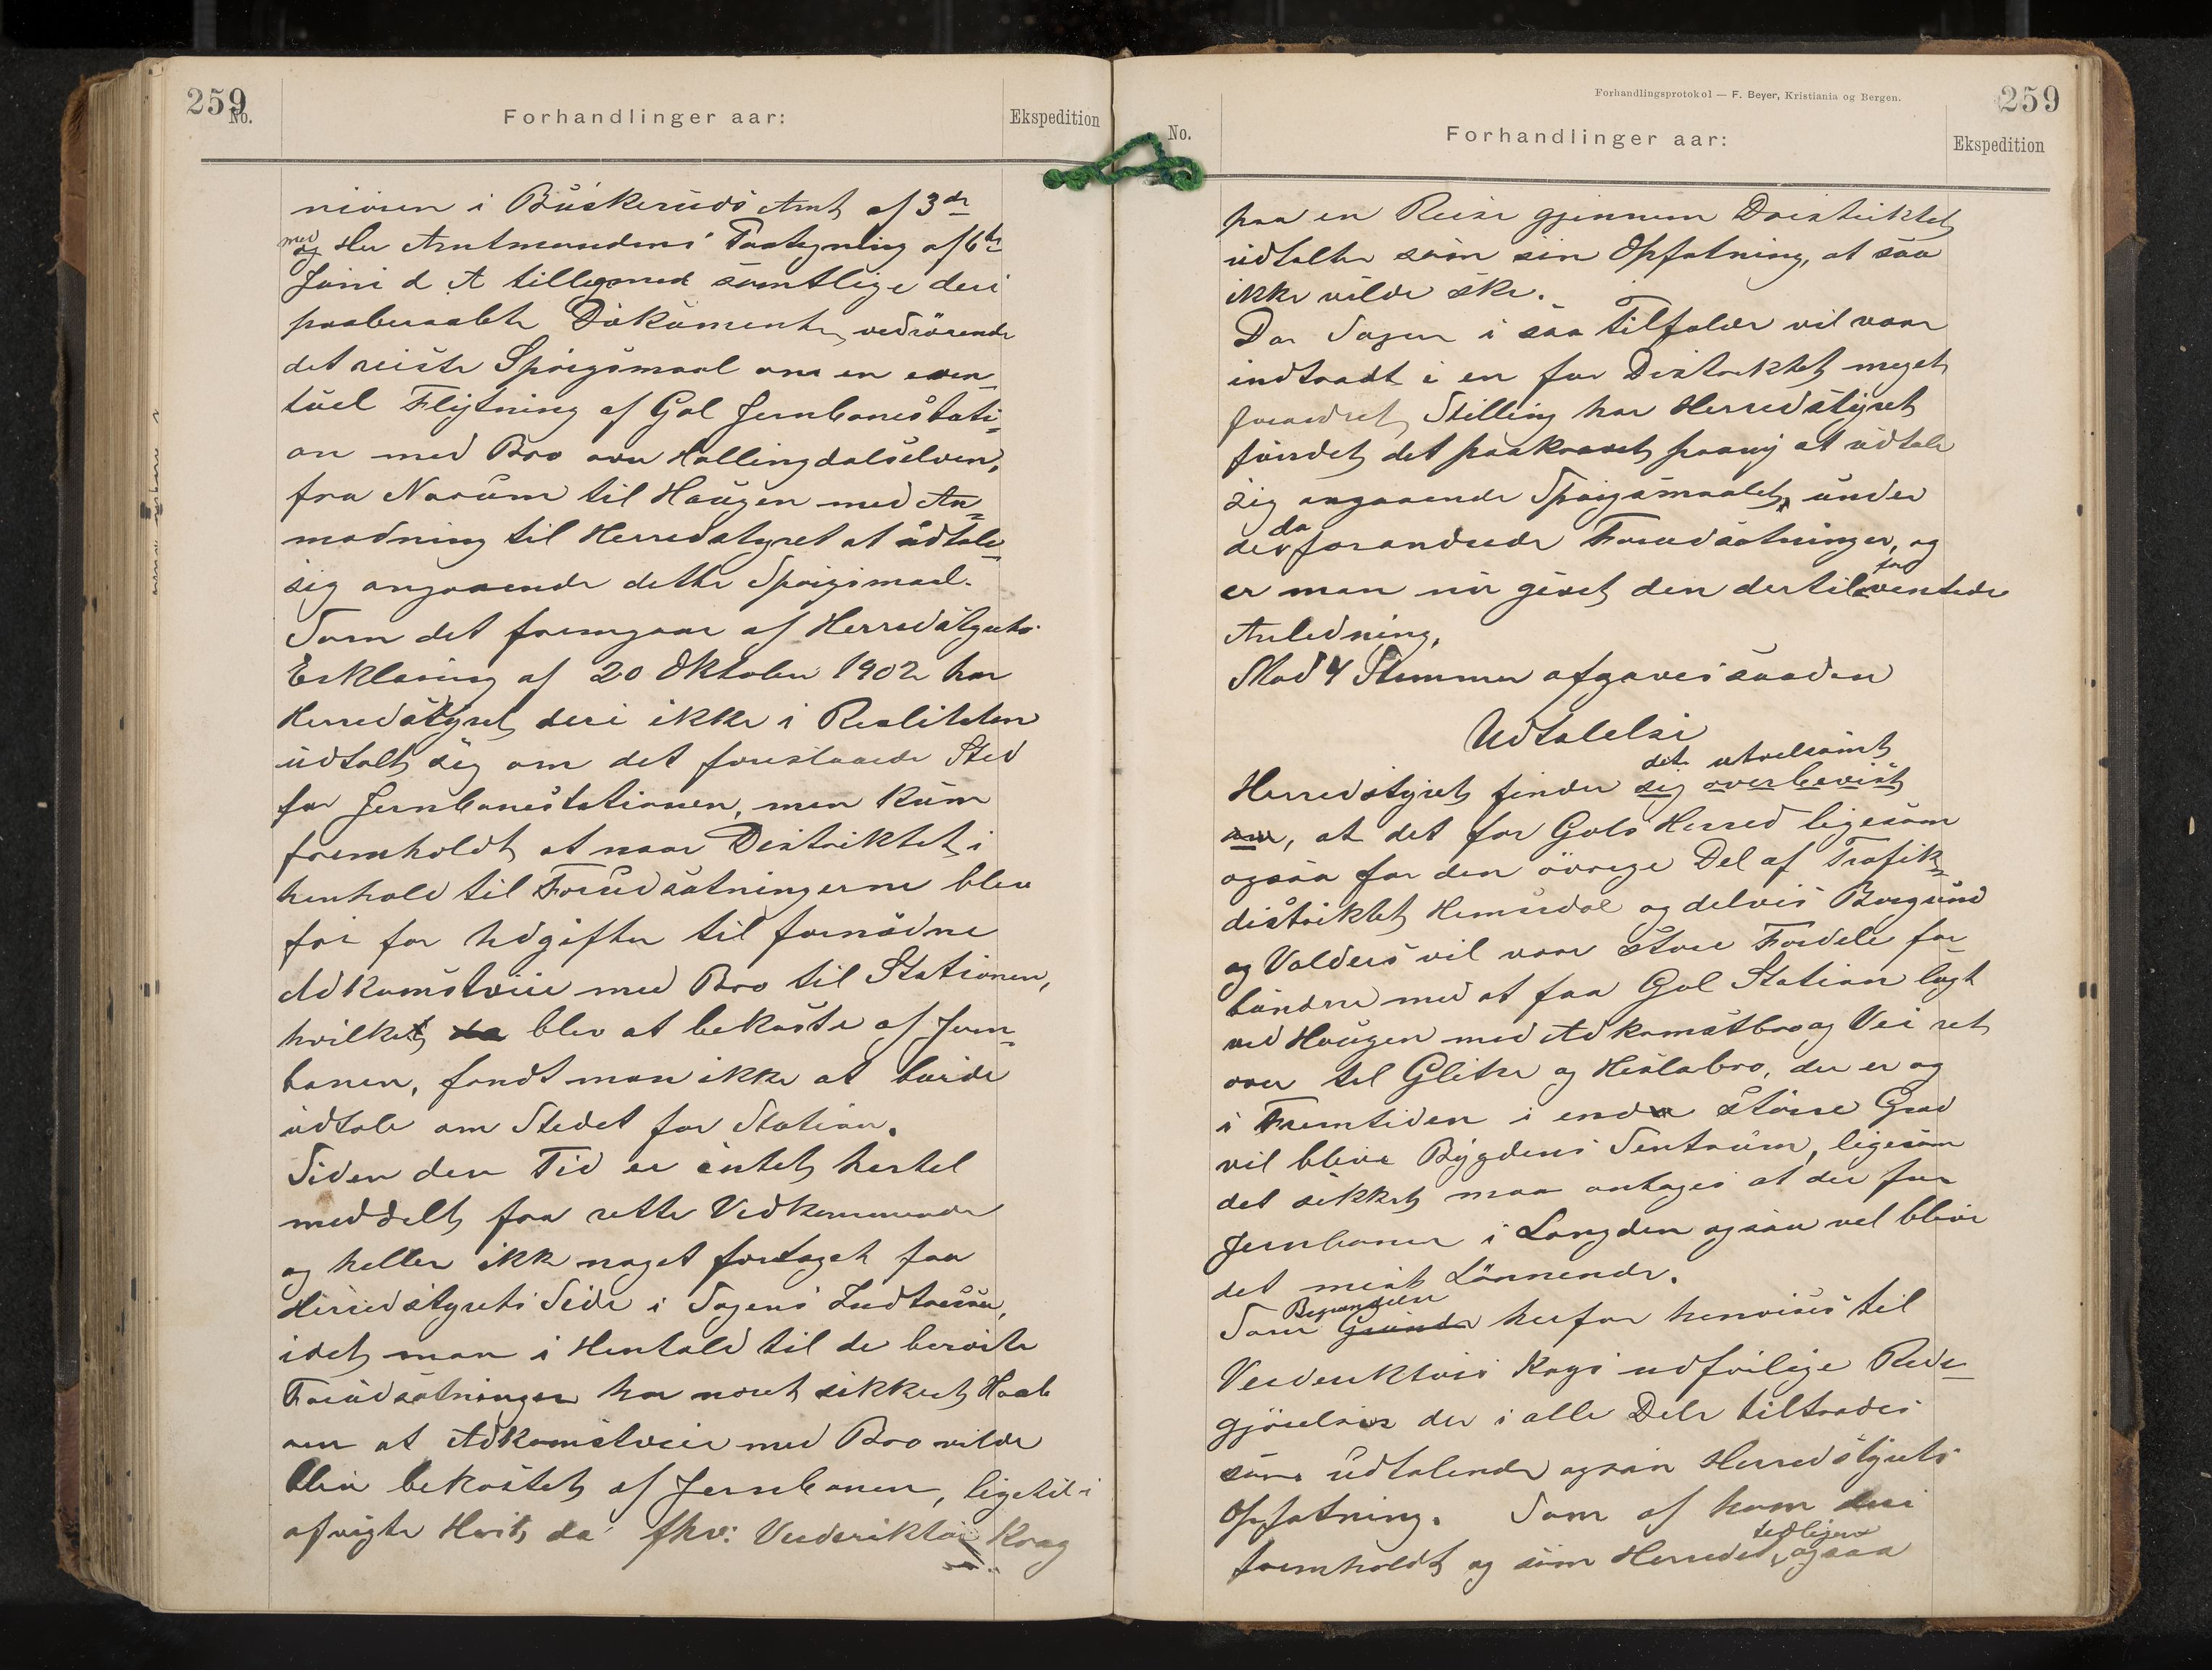 259
No.
Forhandlinger aar:
Ekspedition
niøren i Buskeruds Amt af 3die
med
og Hr Amtmandens Paategning af 6te
Juni d A tilligemed samtlige deri
paaberaabte Dokumenter, vedrørende
det reiste Spørgsmaal om en even-
tuel Flytning af Gol Jernbanestati-
on med Bro over Hallingdalselven,
fra Narum til Haugen med An-
modning til Herredstyret at udtale
sig angaaende dette Spørgsmaal.
Som det fremgaar af Herredstyrets
Erklæring af 20 Oktober 1902 har
Herredstyret deri ikke i Realiteten
udtalt sig om det foreslaaede Sted
for Jernbanestationen, men kun
fremholdt at naar Distriktet i
henhold til Forudsætningerne blev
fri for Udgifter til fornødne
Adkomstveie med Bro til Stationen,
hvilket da blev at bekoste af Jern-
banen, fandt man ikke at burde
udtale om Stedet for Station.
Siden den Tid er intet hertil
meddelt fra rette Vedkommende
og heller ikk noget foretaget fra
Herredstyrets Side i Sagens Anledning,
idet man i Henhold til de berørte
Forudsætninger har næret sikkert Haab
om at Adkomstveie med Bro vilde
blive bekostet af Jernbanen, ligetil i
afvigte Høst, da fhv: Veidirektør Krag
Forhandlingsprotokol — F. Beyer, Kristiania og Bergen.
259
No.
Forhandlinger aar:
Ekspedition
paa en Reise gjennem Distriktet
udtalte som sin Opfatning, at saa
ikke vilde ske.
Da Sagen i saa Tilfælde vil være
indtraadt i en for Distriktet meget
forandret Stilling har Herredstyret
fundet det paakrævet paany at udtale
sig angaaende Spørgsmaalet, under
da
de forandrede Forudsætninger, og
for
er man nu givet den dertil ventede
Anledning.
Mod 4 Stemmer afgaves saadan
Udtalelse
det utvelsomt
Herredstyret finder sig overbevist
om, at det for Gols Herred ligesom
ogsaa for den øvrige Del af Trafik-
distriktet Hemsedal og delvis Borgund
og Valders vil være store Fordele for-
bundne med at faa Gol Station lagt
ved Haugen med Adkomstbro og Vei ret
over til Glitre og Heslabro, der er og
i Fremtiden i enda større Grad
vil blive Bygdens Sentrum, ligesom
det sikkert maa antages at der for
Jernbanen i Længden ogsaa vel blive
det mest Lønnende.
Begrundelse
Som Grunde herfor henvises til
Veidirektør Krags udførlige Rede-
gjørelse der i alle Dele tiltrædes
som udtalende ogsaa Herredstyrets
Opfatning. Som af ham deri
tidligere
fremholdt og som Herredet ogsaa